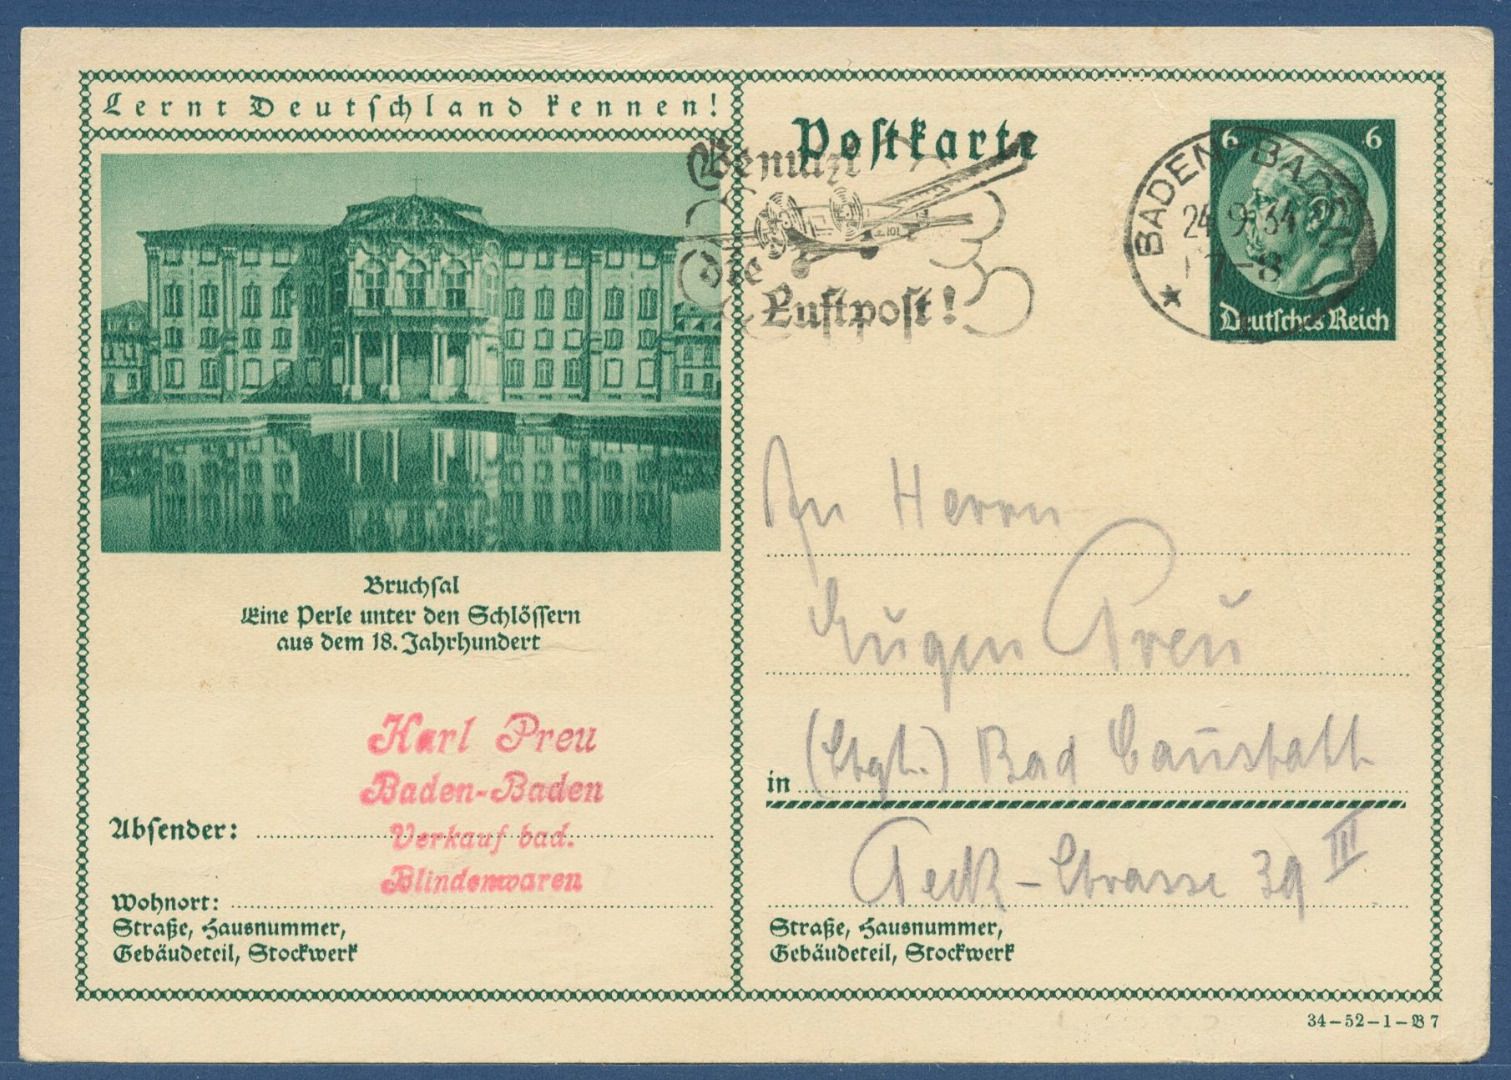 Lernt Deutschland kennen!
Bruchsal
Eine Perle unter den Schlössern
aus dem 18. Jahrhundert
Karl Preu
Baden-Baden
Verkauf bad.
Blindenwaren
Absender:
Wohnort:
Straße, Hausnummer,
Gebäudeteil, Stockwerk
Postkarte
Benutzt
die
Luftpost!
BADEN-BADEN
24.9.34
7-8
6 6
Deutsches Reich
An Herrn
Eugen Preu
in (Stgt.) Bad Cannstatt
Teck-Strasse 39 III
Straße, Hausnummer,
Gebäudeteil, Stockwerk
34-52-1-B7